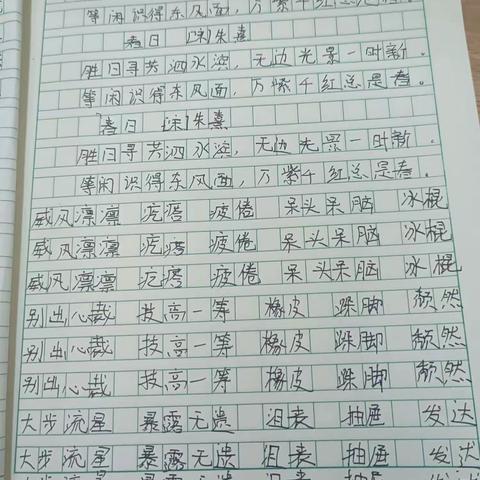 等闲识得东风面，万紫千红总是春。
春日 [宋]朱熹
胜日寻芳泗水滨，无边光景一时新。
等闲识得东风面，万紫千红总是春。
春日 [宋]朱熹
胜日寻芳泗水滨，无边光景一时新。
等闲识得东风面，万紫千红总是春。
威风凛凛 疙瘩 疲倦 呆头呆脑 冰棍
威风凛凛 疙瘩 疲倦 呆头呆脑 冰棍
威风凛凛 疙瘩 疲倦 呆头呆脑 冰棍
别出心裁 技高一筹 橡皮 跺脚 颓然
别出心裁 技高一筹 橡皮 跺脚 颓然
别出心裁 技高一筹 橡皮 跺脚 颓然
大步流星 暴露无遗 沮丧 抽屉 发达
大步流星 暴露无遗 沮丧 抽屉 发达
大步流星 暴露无遗 沮丧 抽屉 发达